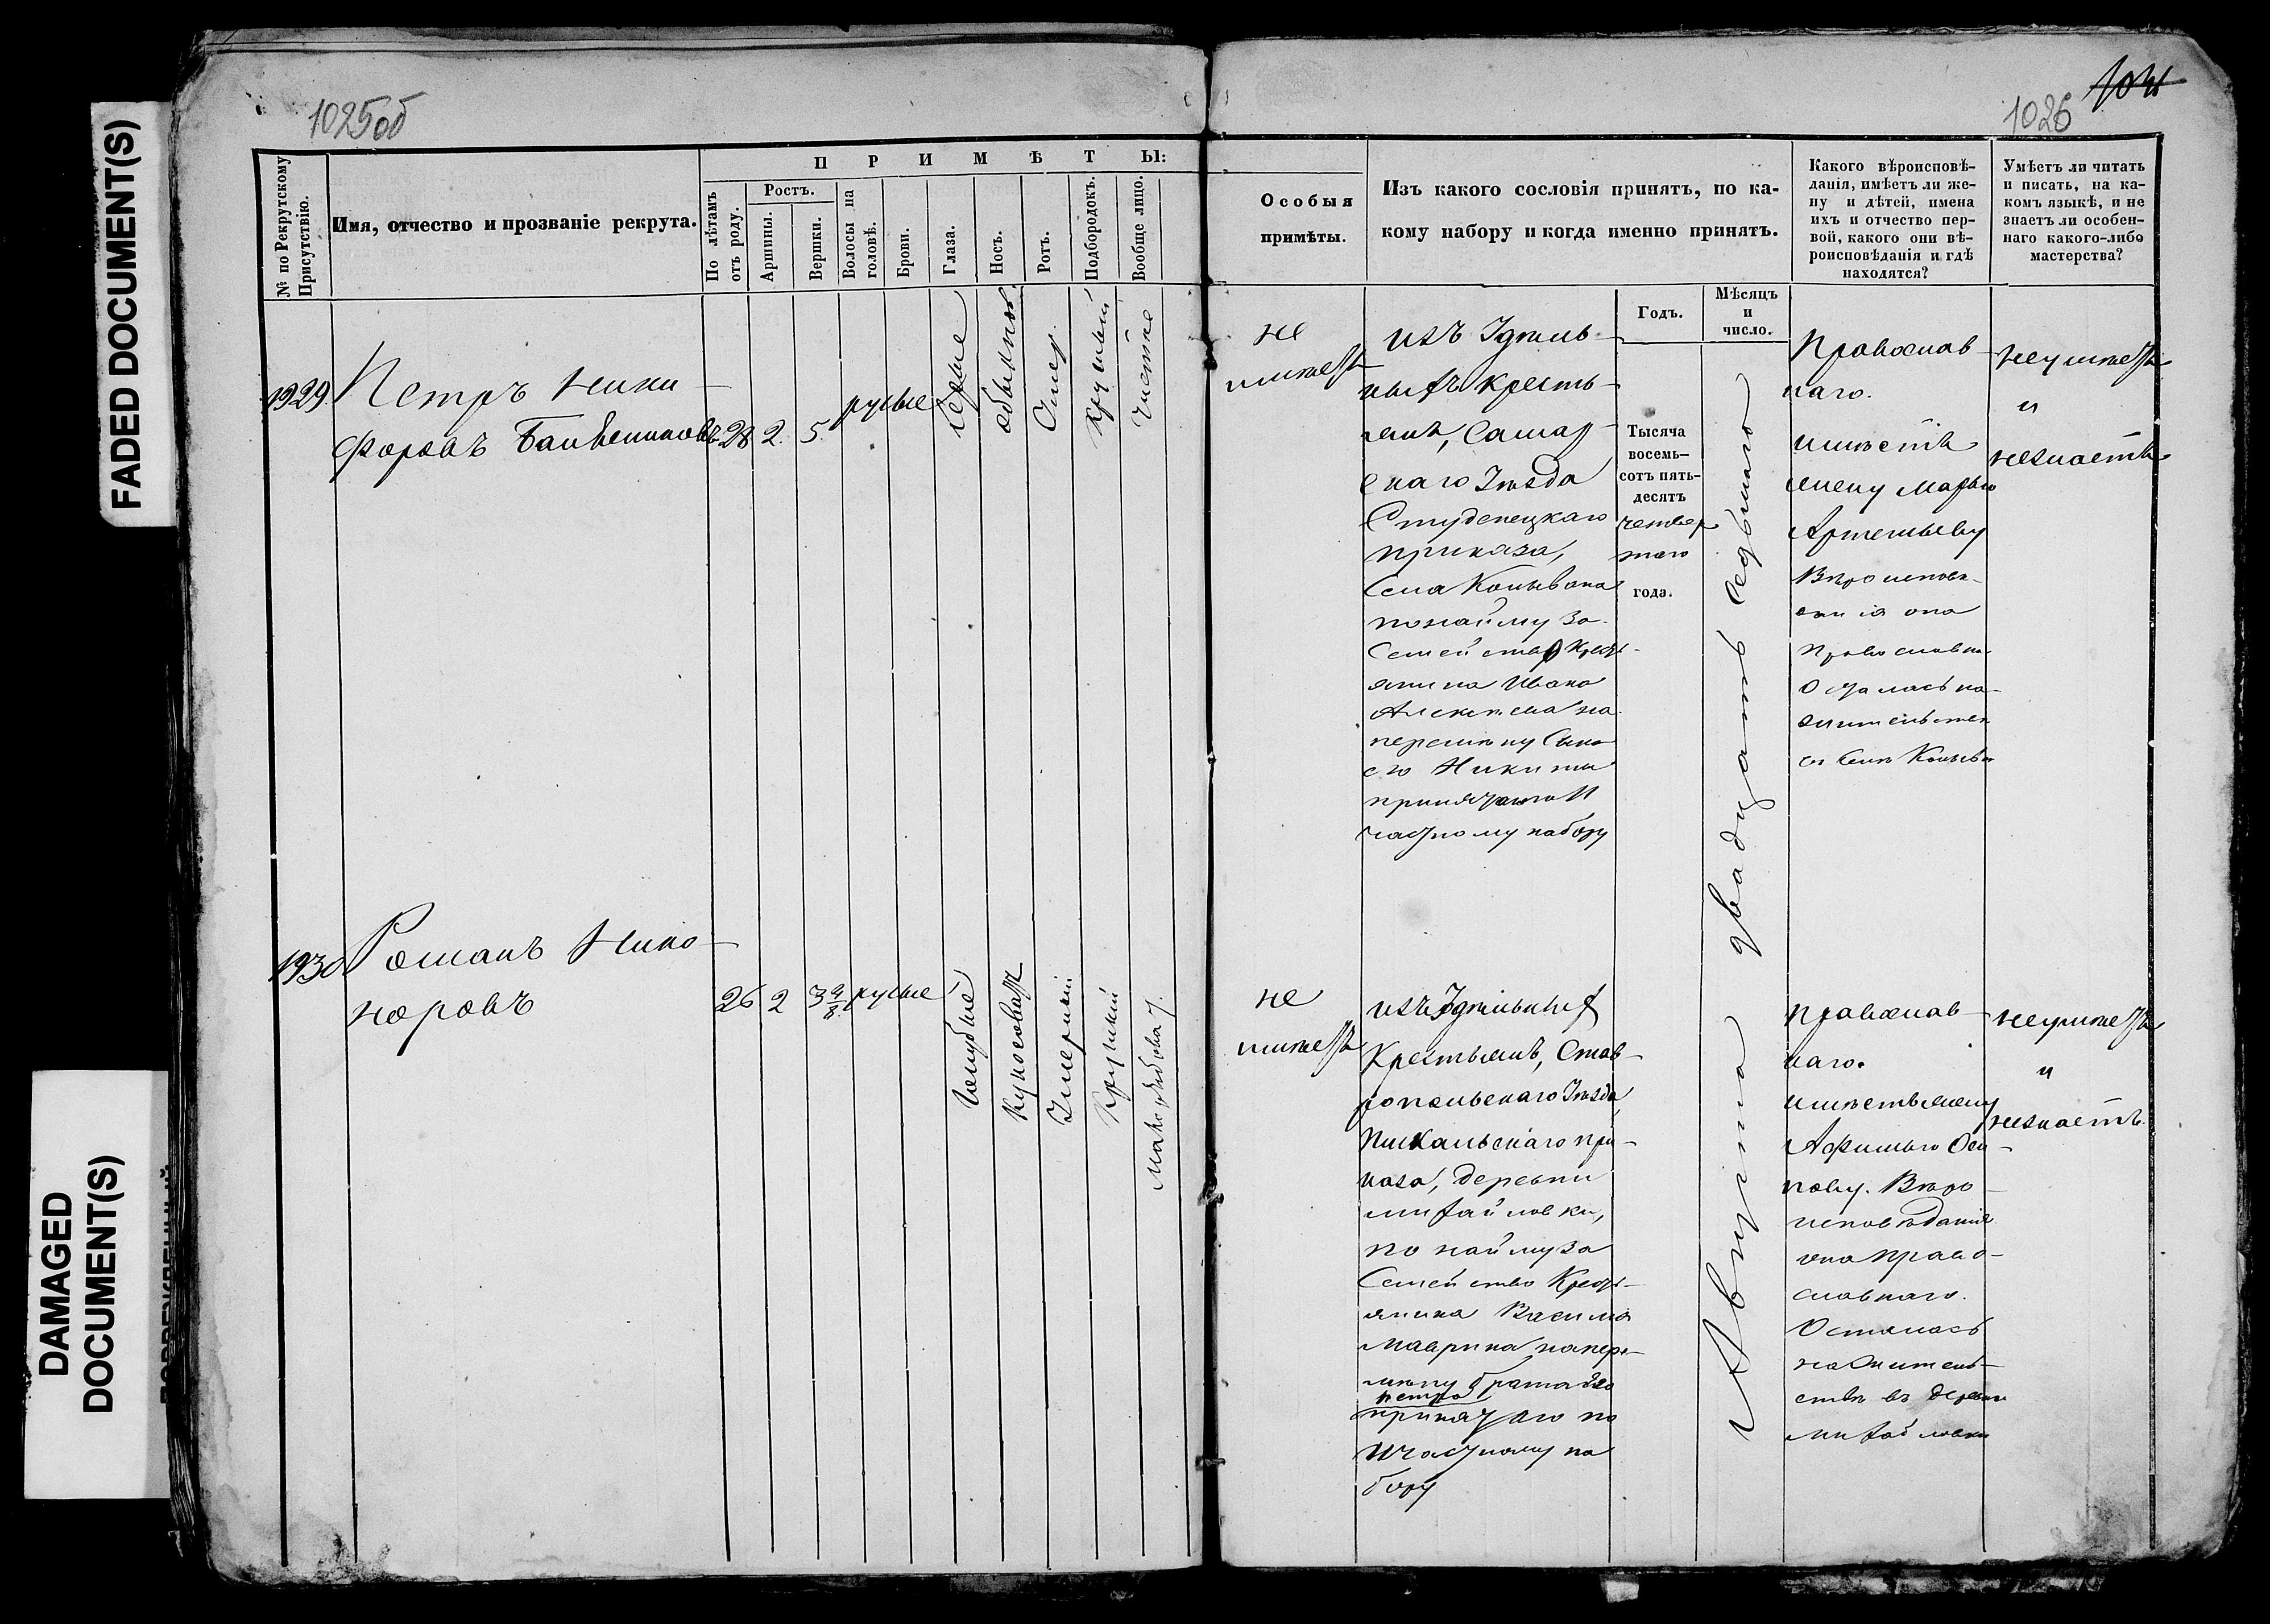 FADED DOCUMENT(S)
DAMAGED
DOCUMENT(S)
1025об
1026
№ по Рекрутскому
Присутствію.
Имя, отчество и прозваніе рекрута.
ПРИМѢТЫ:
По лѣтамъ
отъ роду.
Ростъ.
Аршины.
Вершки.
Волосы на
головѣ.
Брови.
Глаза.
Носъ.
Ротъ.
Подбородокъ.
Вообще лицо.
Особыя
примѣты.
Изъ какого сословія принятъ, по ка-
кому набору и когда именно принятъ.
Какого вѣроисповѣ-
данія, имѣетъ ли же-
ну и дѣтей, имена
ихъ и отчество пер-
вой, какого они вѣ-
роисповѣданія и гдѣ
находятся?
Умѣетъ ли читать
и писать, на ка-
комъ языкѣ, и не
знаетъ ли особен-
наго какого-либо
мастерства?
Годъ.
Мѣсяцъ
и
число.
1929
Петръ Ники
форовъ
28
2.
5.
русые
сѣрые
обыкнов.
Умер.
Круглый
чистое
не
имѣетъ
изъ Удѣль-
ныхъ кресть-
янъ, Самар-
скаго Уѣзда
Студенецкаго
приказа,
Села Колывана
по найму за
Семейство Кресть-
янина Ивана
Алексѣева на
перемѣну Сына
его Никиты
принятаго 11
частному набору
Тысяча
восемь-
сотъ пять-
десятъ
четвер
таго
года.
Августа двадцать седьмаго
Православ-
наго.
имѣетъ
жену Марью
Артемьеву
Вѣроисповѣ-
данія она
Православна
Осталась на
жительстве
въ Селѣ Колыва
неумѣетъ
и
незнаетъ
1930
Романъ Нико-
норовъ
26
2
3 4/8
русые
голубые
Куносоват
Умерный
Круглый
малорябоват.
не
имѣетъ
изъ Удѣльныхъ
Крестьянъ, Став-
ропольскаго Уѣзда,
Пискальскаго при-
каза, деревни
Михайловки,
по найму за
Семейство Кресть-
янина Василья
Маврина на пере-
мѣну брата его
Петра
принятаго по
11 частному на
бору
Православ-
наго.
имѣетъ жену
Афимью Оси-
пову. Вѣро-
исповѣданія
она право-
славнаго.
Осталась
на житель-
ствѣ въ деревни
Михайловки
неумѣетъ
и
незнаетъ.